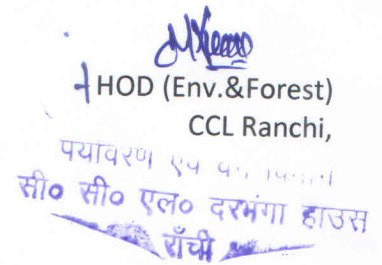 HOD (Env.&Forest)
CCL Ranchi,
पर्यावरण एवं
सी० सी० एल० दरभंगा हाउस
राँची